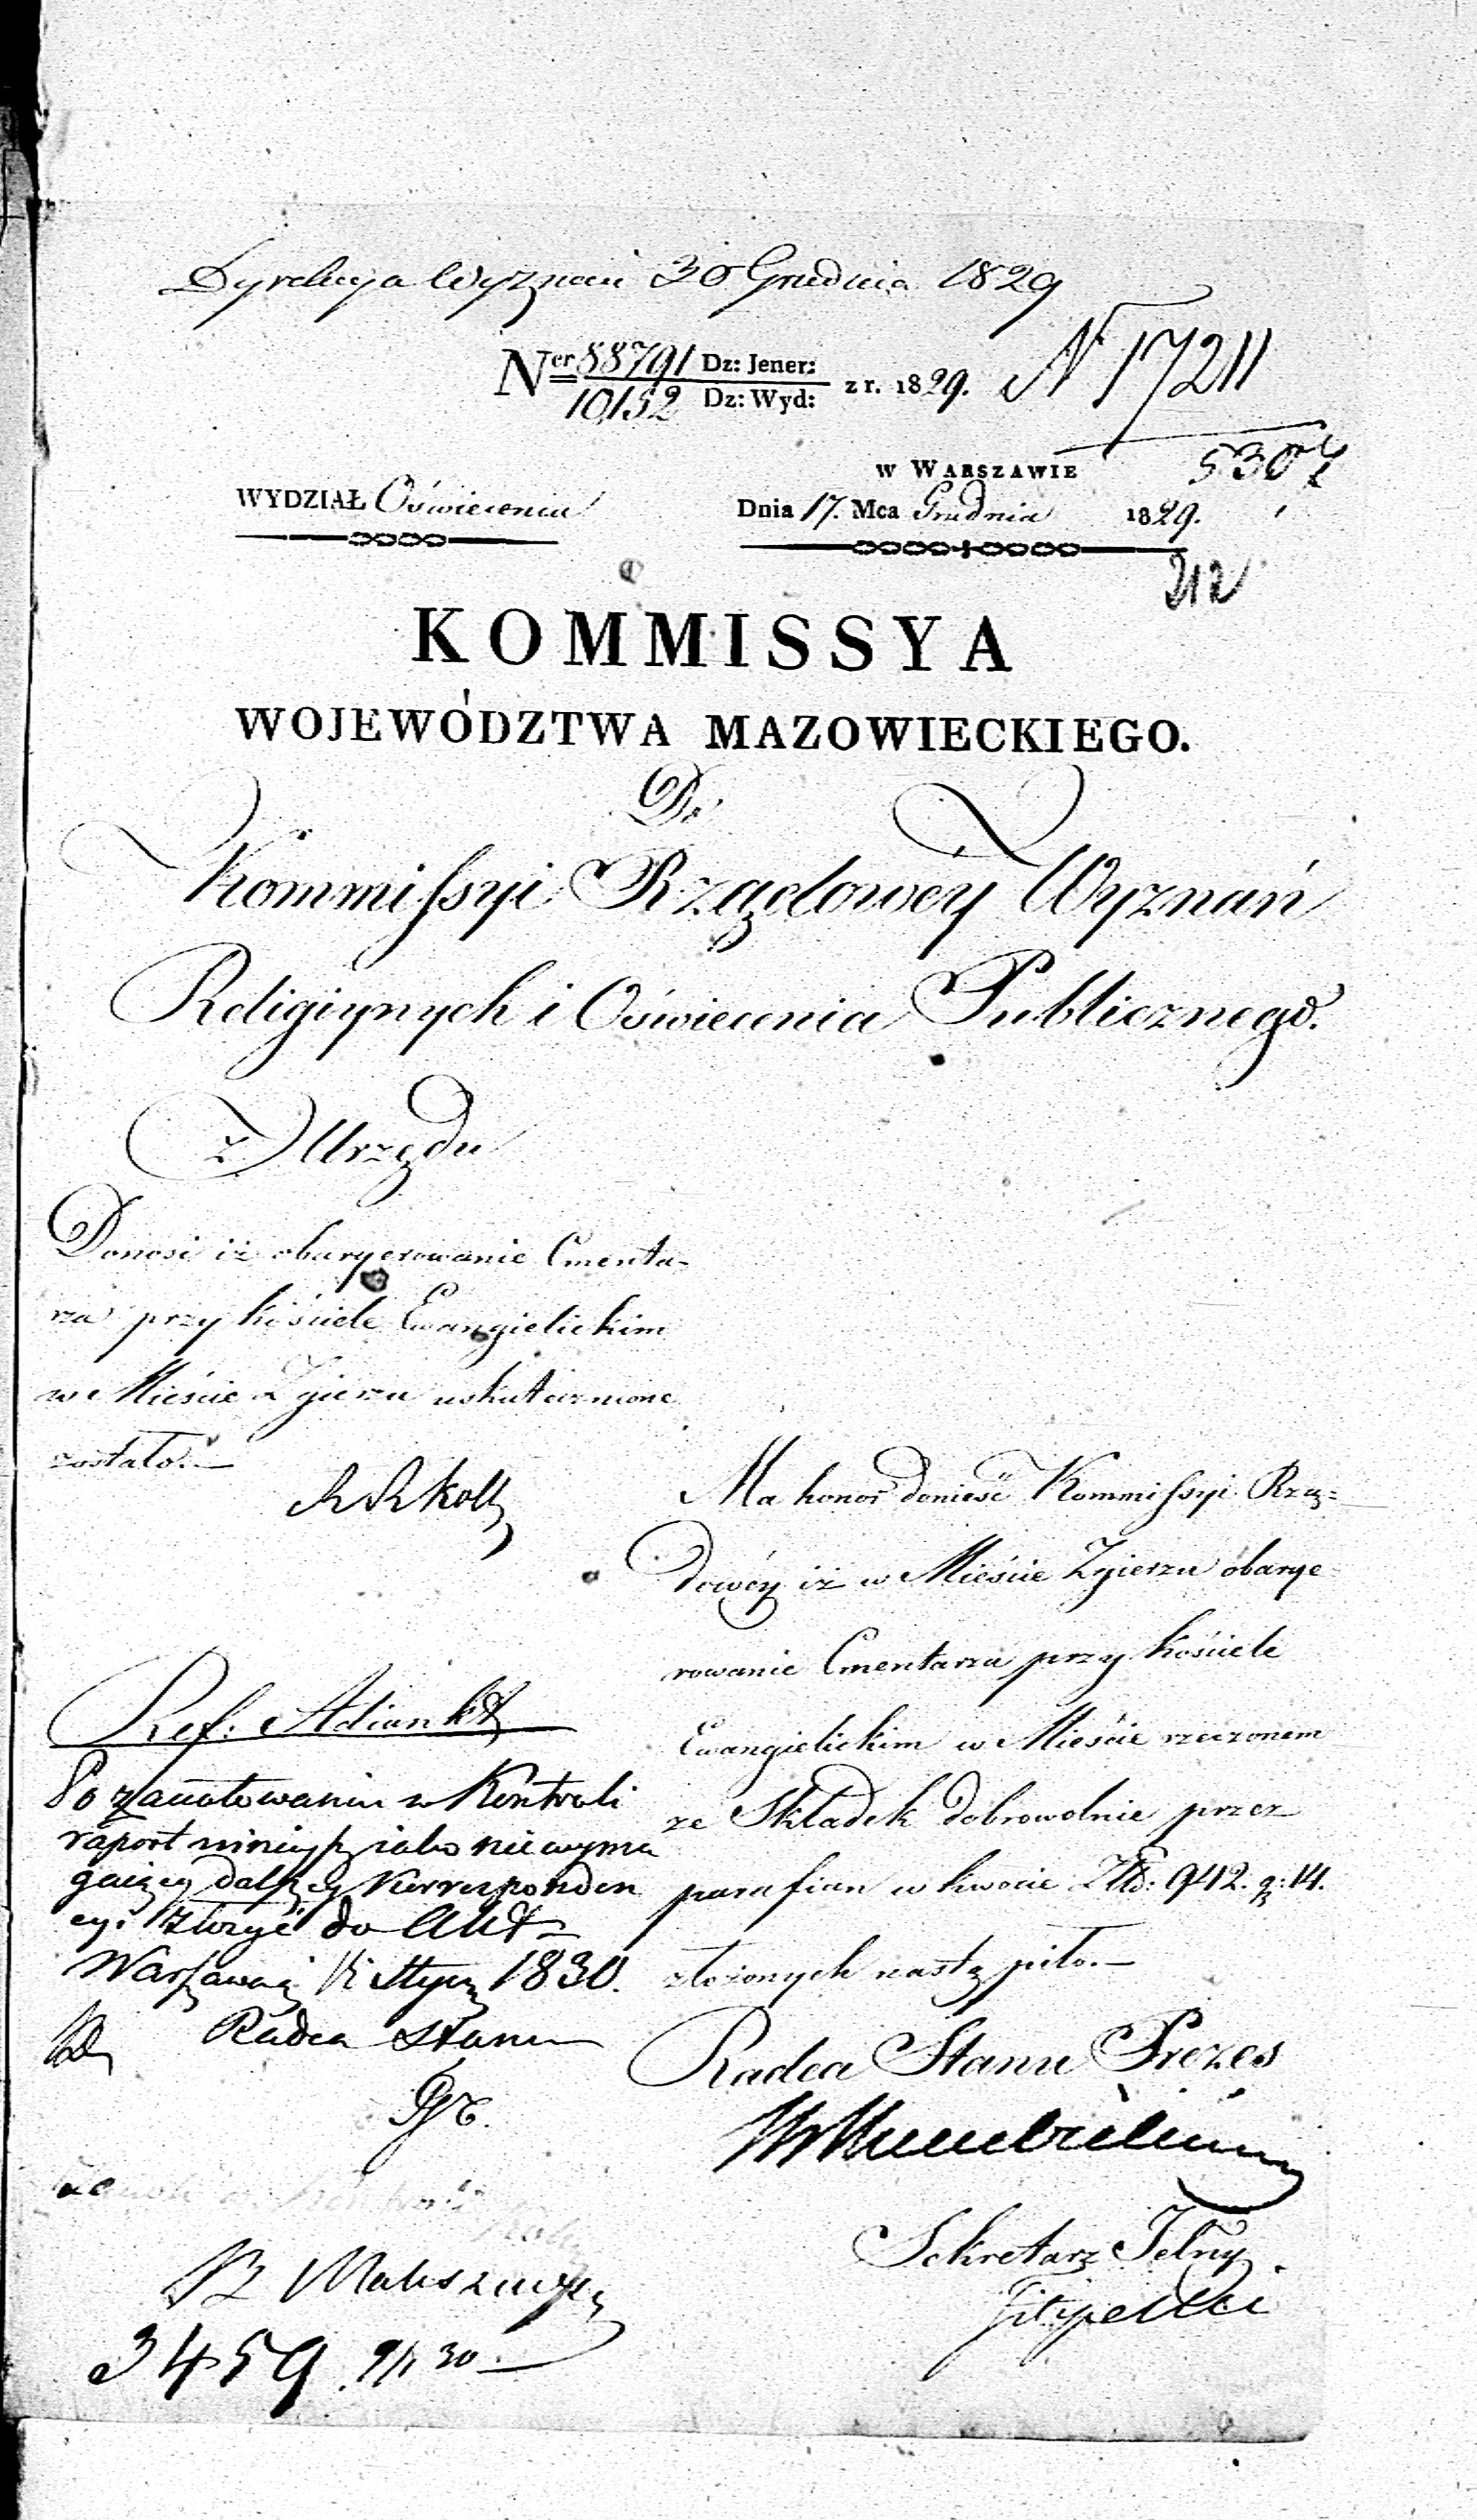 Dyrekcya Wyznań 30 Grudnia 1829
Ner 88791 Dz: Jener: z r. 1829. N 17211
10,152 Dz: Wyd:
5307
w Warszawie
WYDZIAŁ Oświecenia
Dnia 17. Mca Grudnia 1829.
212
KOMMISSYA
WOJEWÓDZTWA MAZOWIECKIEGO.
Do
Kommissyi Rządowéy Wyznań
Religiynych i Oświecenia Publicznego.
Z Urzędu
Donosi iż obaryerowanie Cmenta-
rza przy kościele Ewangielickim
w Mieście Zgierzu uskutecznione
zostało.—
Ma honor donieść Kommissyi Rzą-
dowéy iż w Mieście Zgierzu obarye-
rowanie Cmentarza przy kościele
Ewangielickim w Mieście rzeczonem
ze Składek dobrowolnie przez
parafian w kwocie Złd: 942. g: 14.
złożonych nastąpiło.—
Radca Stanu Prezes
Sekretarz Jelny
Filipecki
Ref: Adiunkt
Po zanotowaniu w Kontroli
raport ninieyszy iako niewyma
gaiący dalszey Korresponden
cyi złożyć do Akt
Warszawa Stycz 1830.
Radca Stanu
3459 9/1 30.